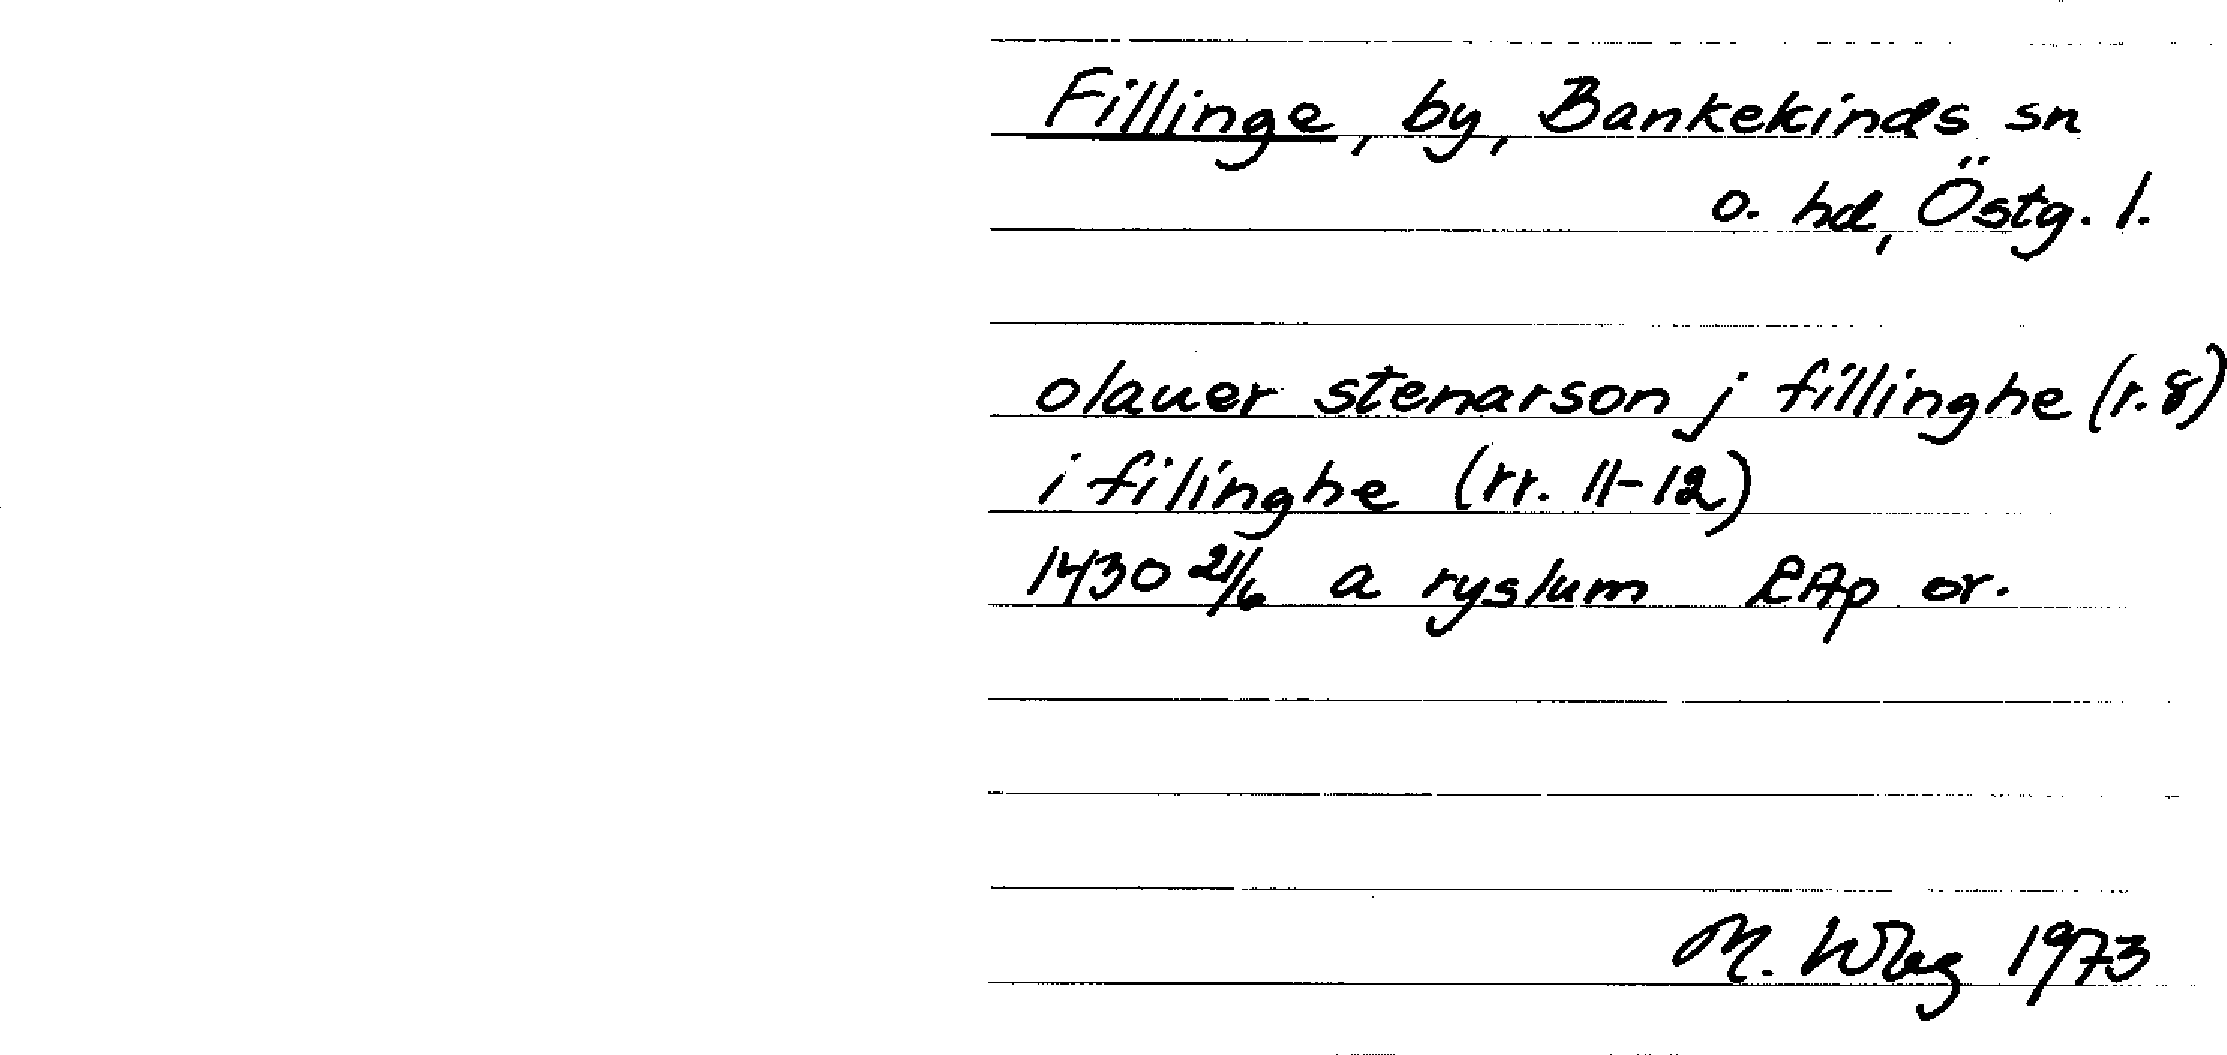 Fillinge, by, Bankekinds sn
o. hd, Östg. l.
olauer stenarson j fillinghe (r. 8)
i filinghe (rr. 11-12)
1430 21/6 a ryslum RAp or.
M. 1973